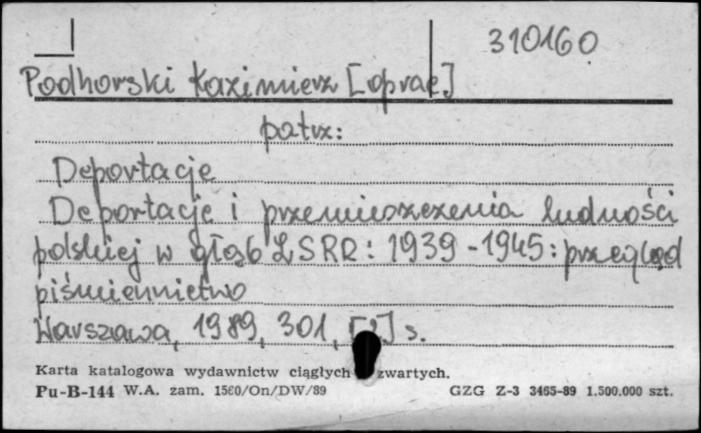 310160
Podhorski Kazimierz [oprac]
patrz:
Deportacje
Deportacje i przemieszczenia ludności
polskiej w głąb ZSRR: 1939-1945: przegląd
piśmiennictwa
Warszawa, 1989, 301, [] s.
Karta katalogowa wydawnictw ciągłych zwartych.
Pu-B-144 W.A. zam. 1560/On/DW/89 GZG Z-3 3465-89 1.500.000 szt.